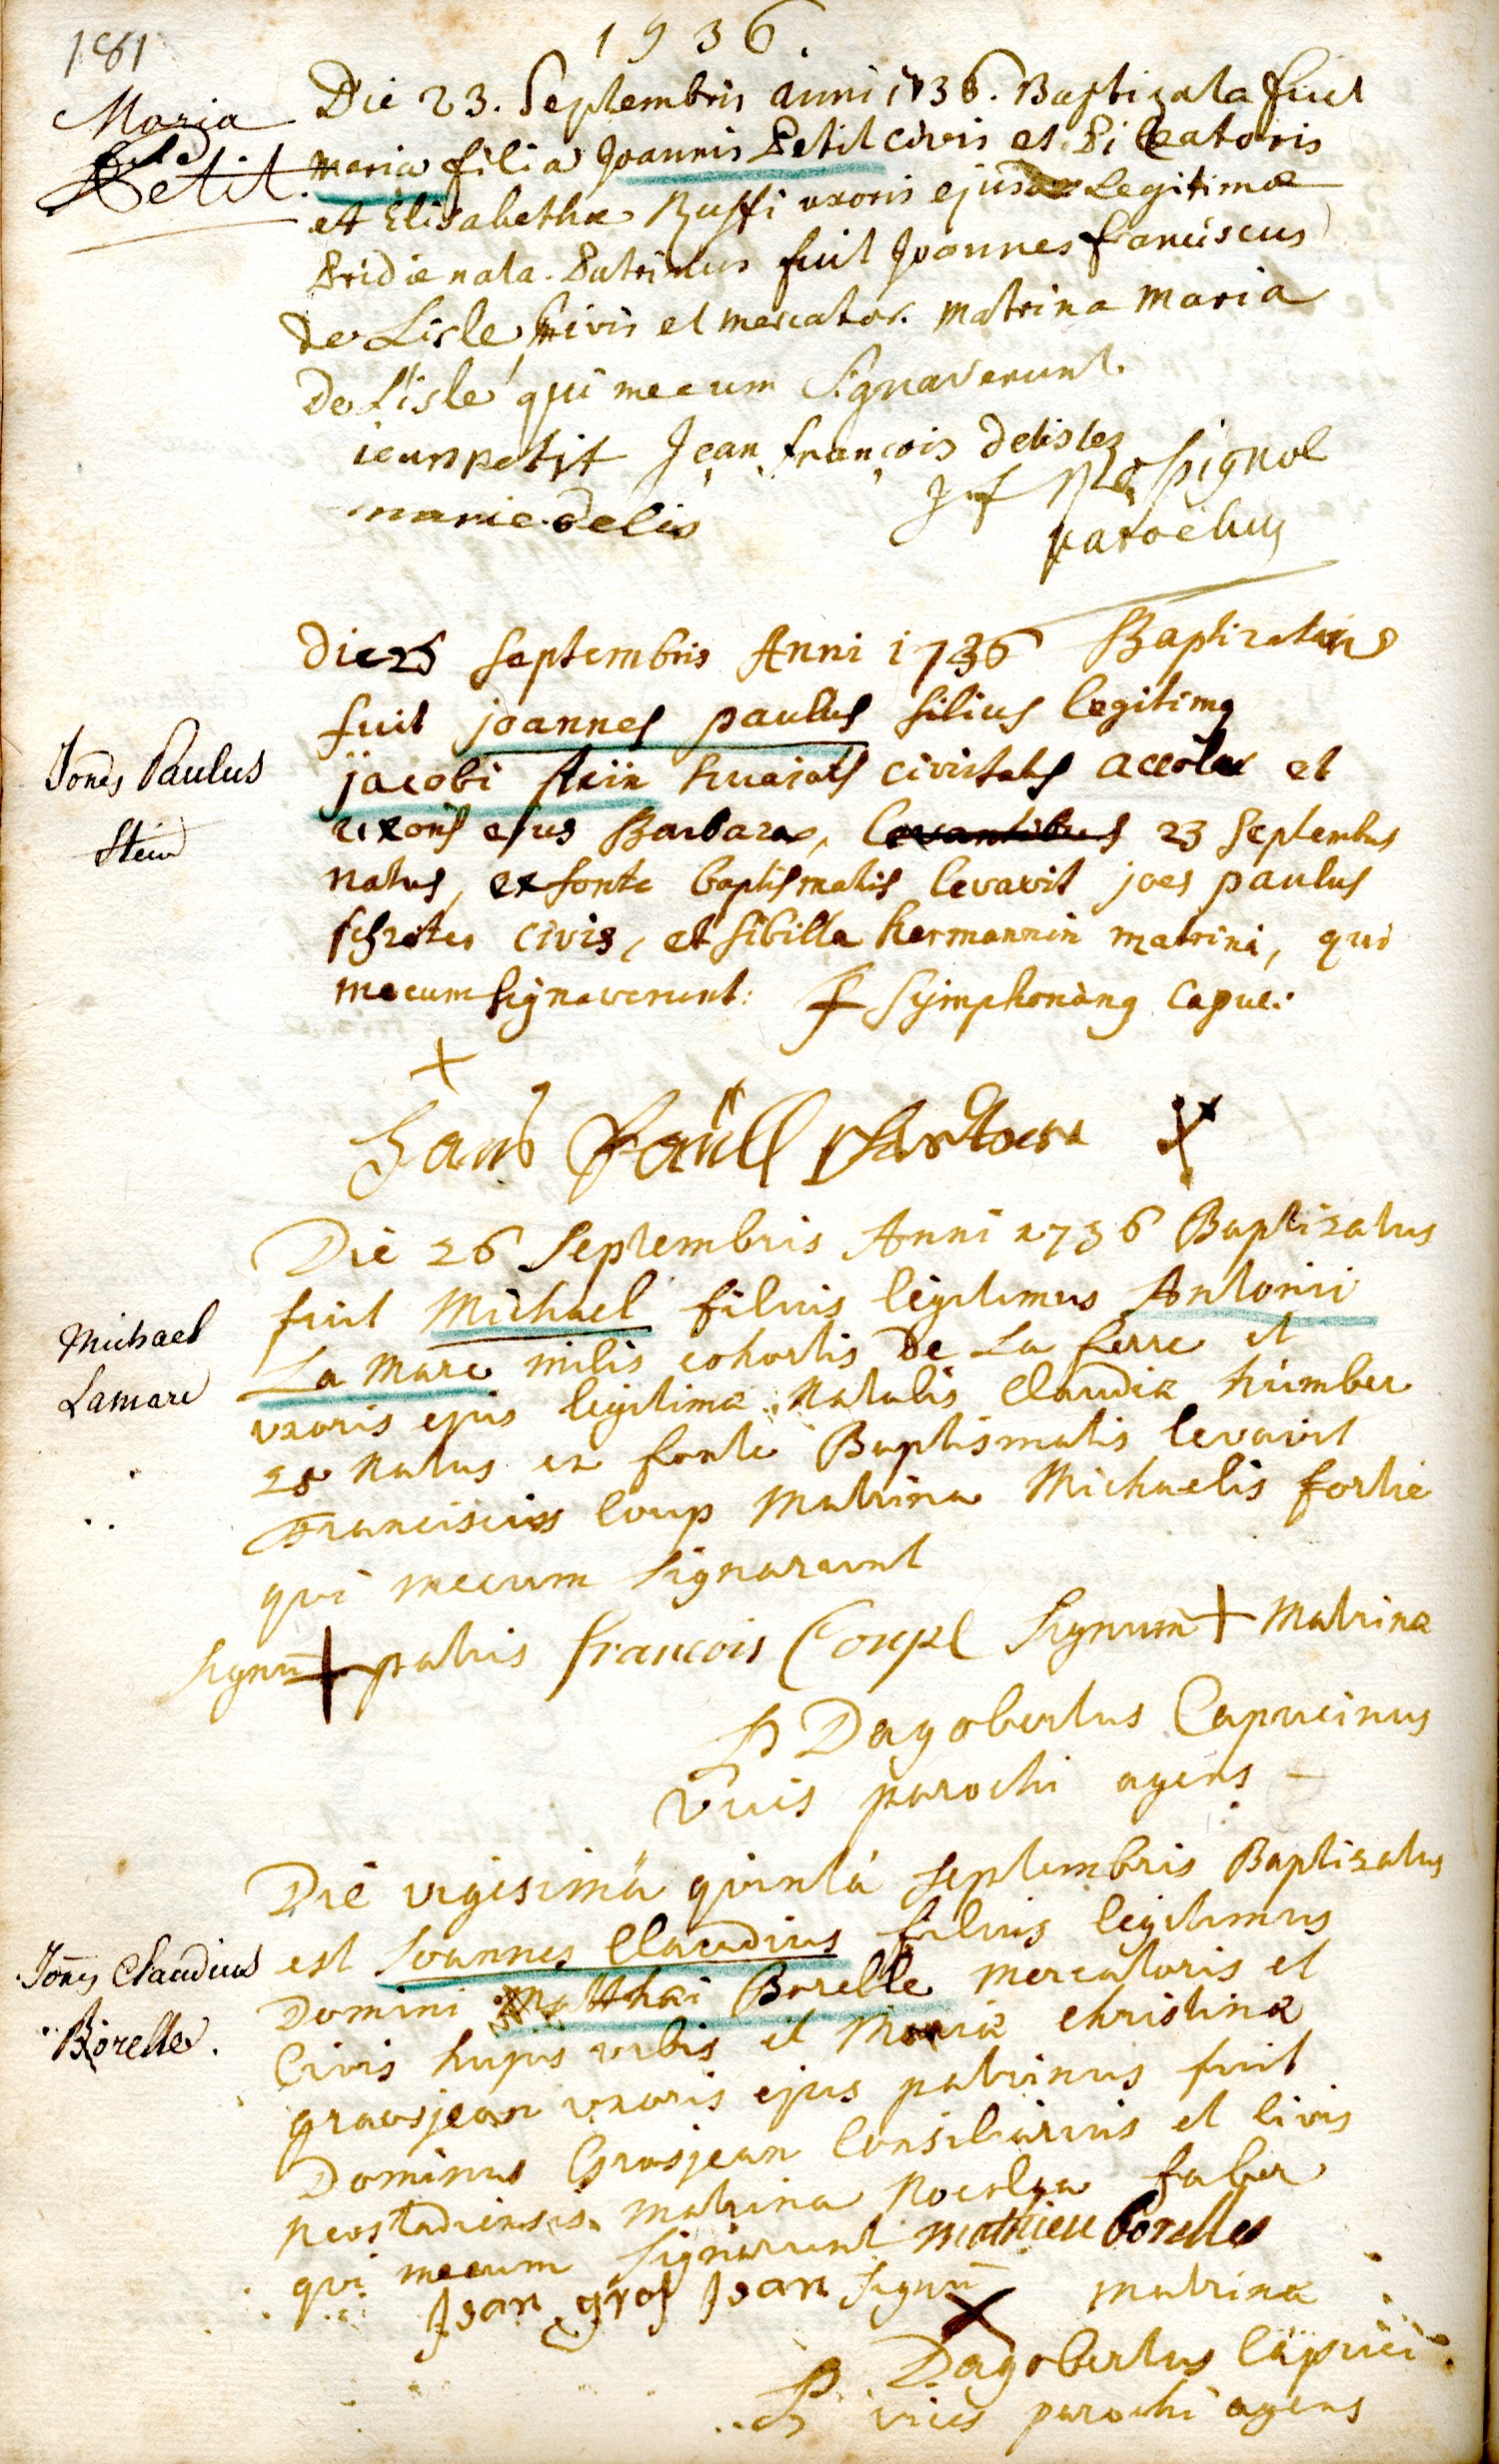 181
1736.
Maria
Petit
Die 23. Septembris anni 1736. Baptizata fuit
maria filia Joannis Petit civis et Pileatoris
et Elisabethæ Ruffi uxoris ejus Legitimæ
Pridie nata. Patrinus fuit Joannes franciscus
de Lisle, civis et mercator. matrina maria
De Lisle qui mecum Signaverunt.
jean petit Jean françois delisles
marie delis
J f Rossignol
parochus
Die 25 Septembris Anni 1736 Baptizatus
fuit joannes paulus filius legitimq
Jones Paulus
Stein
jacobi stein hujatis civitatis accolæ et
uxoris ejus Barbaræ, levantibus 23 Septembris
natus, ex fonte baptismatis levavit joes paulus
schröter civis, et Sibilla hermannin matrina, qui
mecum signaverunt: f Symphorianq Capuc:
+
Hans Paull
Die 26 Septembris Anni 1736 Baptizatus
fuit Michael filius legitimus Antonii
Michael
Lamare
La Mare milis cohortis De La ferre et
uxoris ejus legitimæ Natalis Claudiæ humber
25 Natus ex fonte Baptismatis levavit
Franciscus loup Matrina Michaelis fortie
qui mecum signarunt
Signū + patris francois Coupl Signum + Matrinæ
P Dagobertus Capucinus
vices parochi agens
Die vigesimâ quintâ septembris Baptizatus
est Joannes Claudius filius legitimus
Jones Claudius
Borelle.
Domini Matthæi Borelle mercatoris et
Civis hujus urbis et Mariæ christinæ
grosjean uxoris ejus patrinus fuit
Dominus Grosjean Consiliarius et civis
Neostadiensis matrina faber
qui mecum signarunt mathieu borelle
Jean gros Jean signū X matrinæ
P Dagobertus Capuci
vices parochi agens